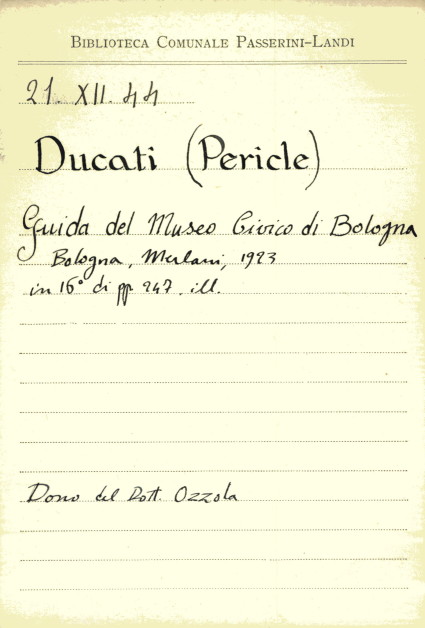 BIBLIOTECA COMUNALE PASSERINI-LANDI
21. XII. 44
Ducati (Pericle)
Guida del Museo Civico di Bologna
Bologna, Merlani, 1923
in 16° di pp 247. ill.
Dono del Dott. Ozzola